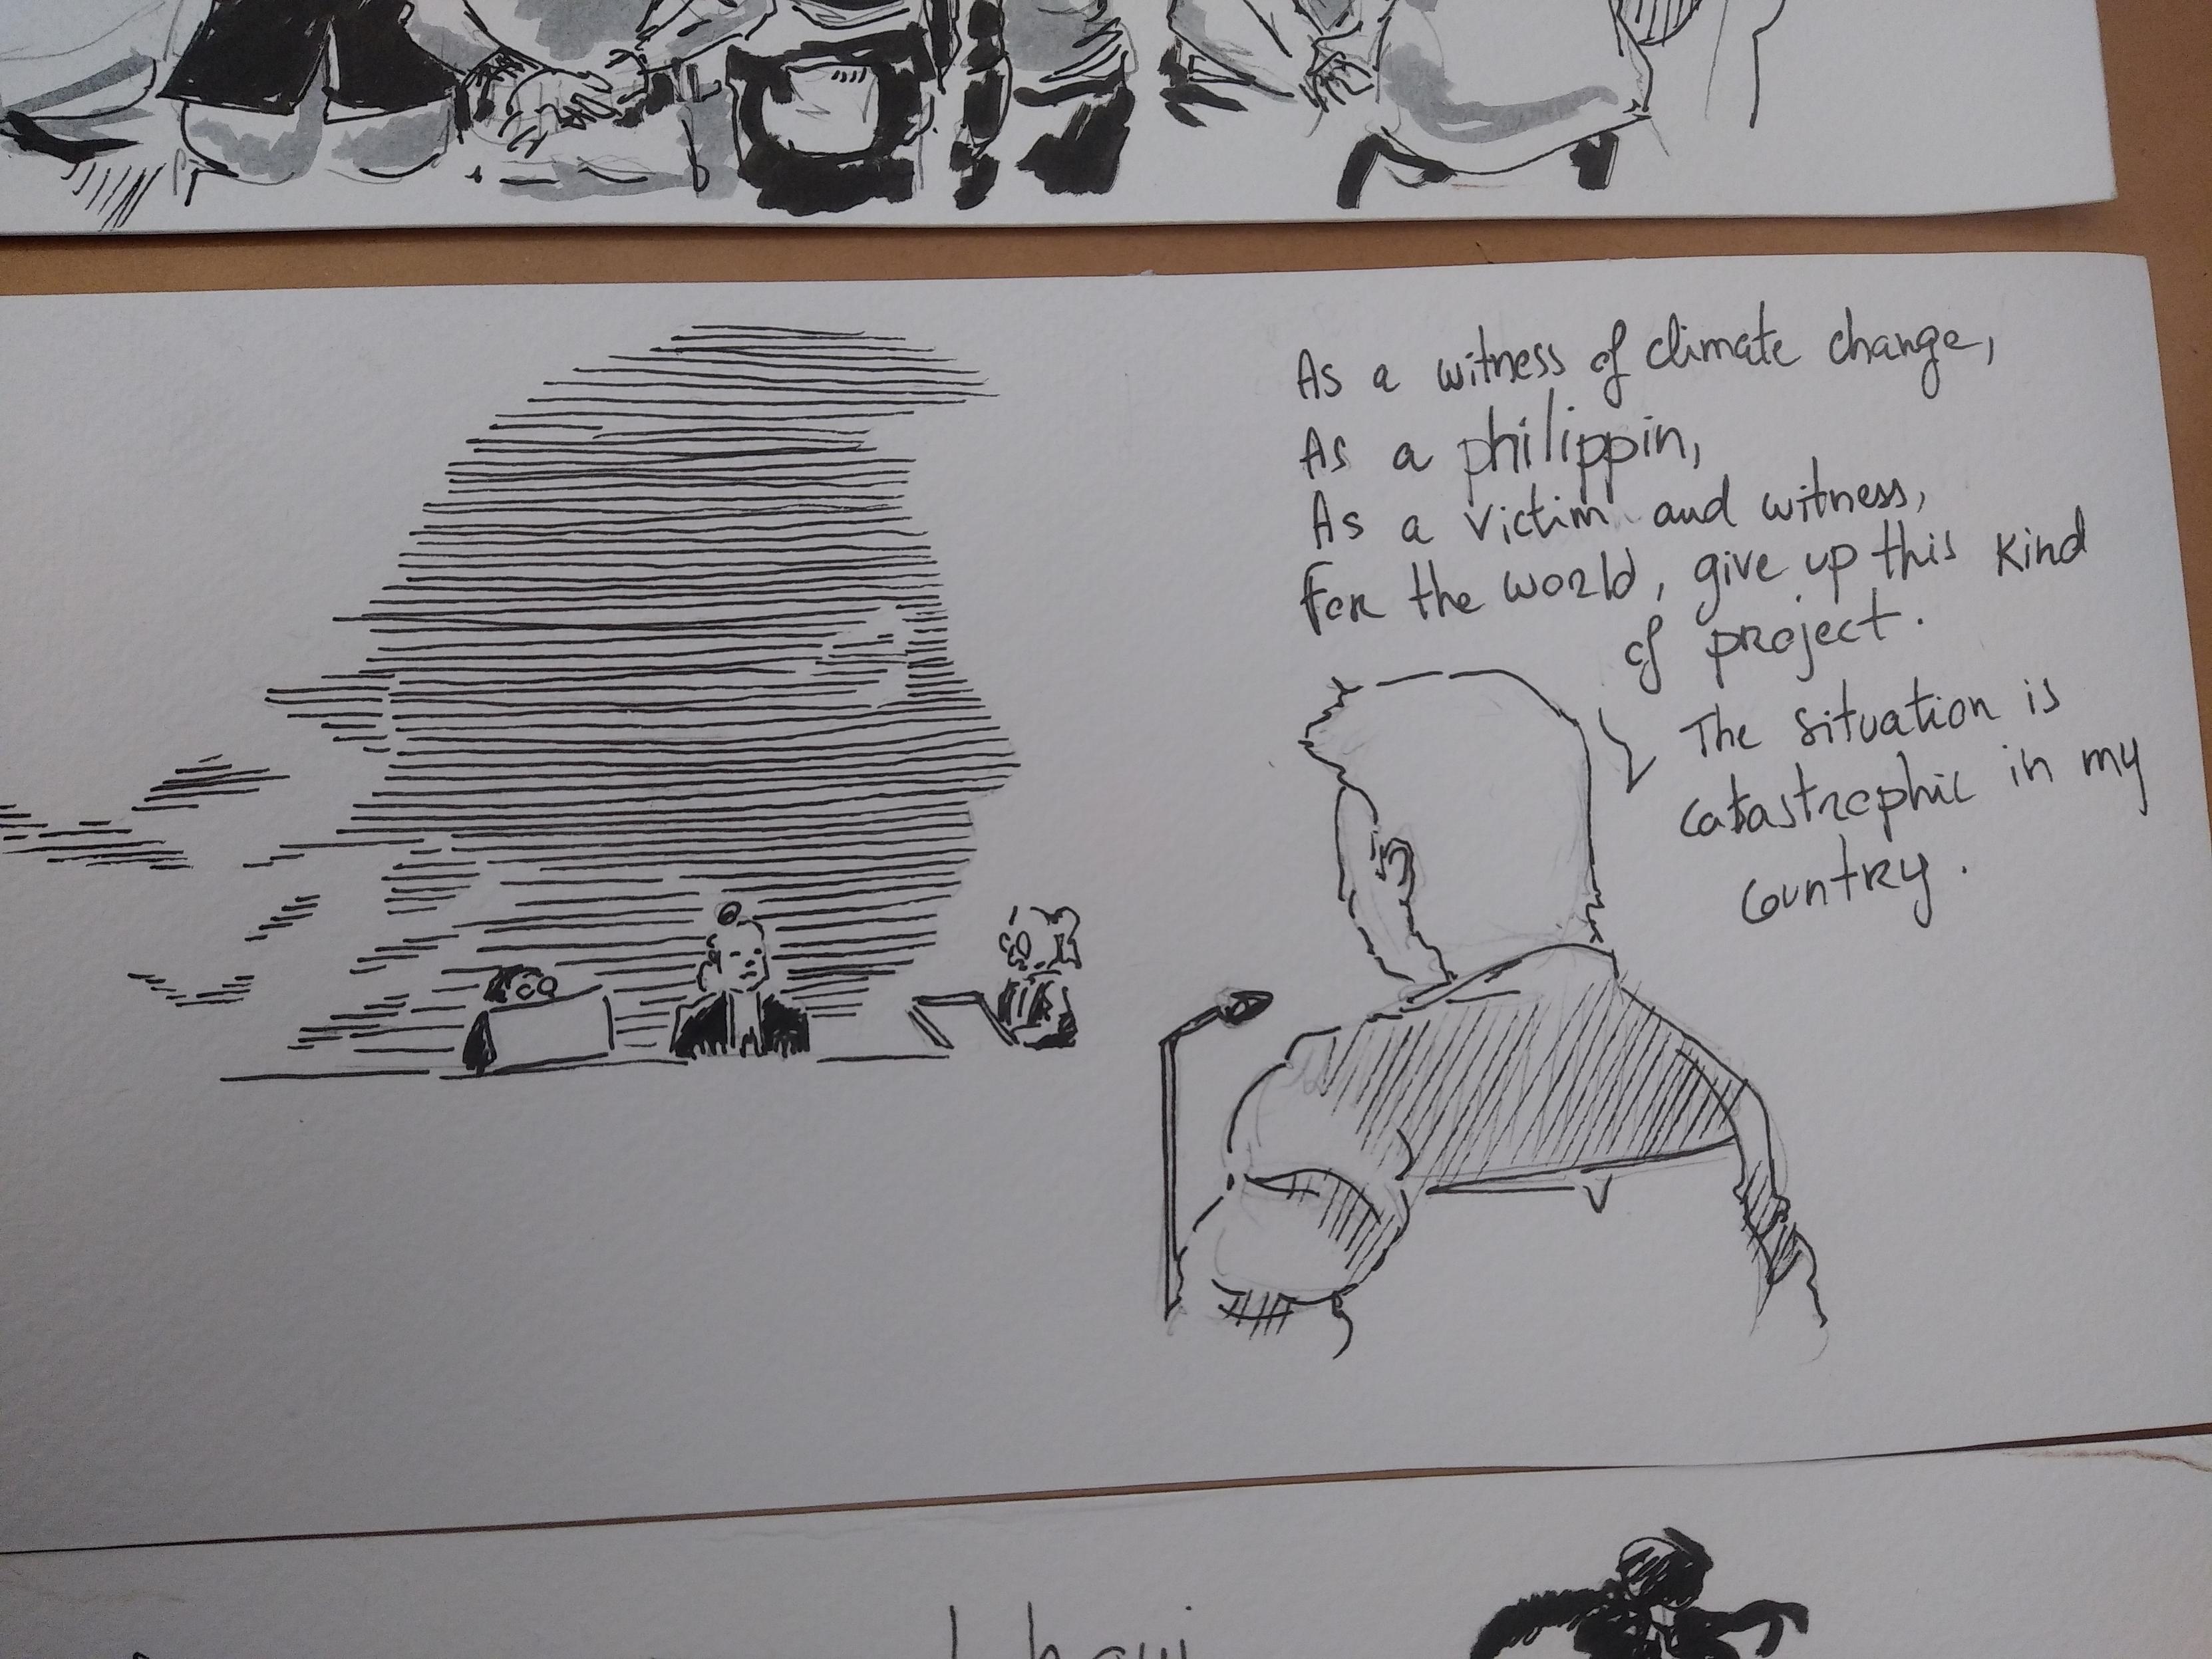 As a witness of climate change,
As a philippin,
As a victim and witness,
For the world, give up this kind
of project.
The situation is
catastrophic in my
country.